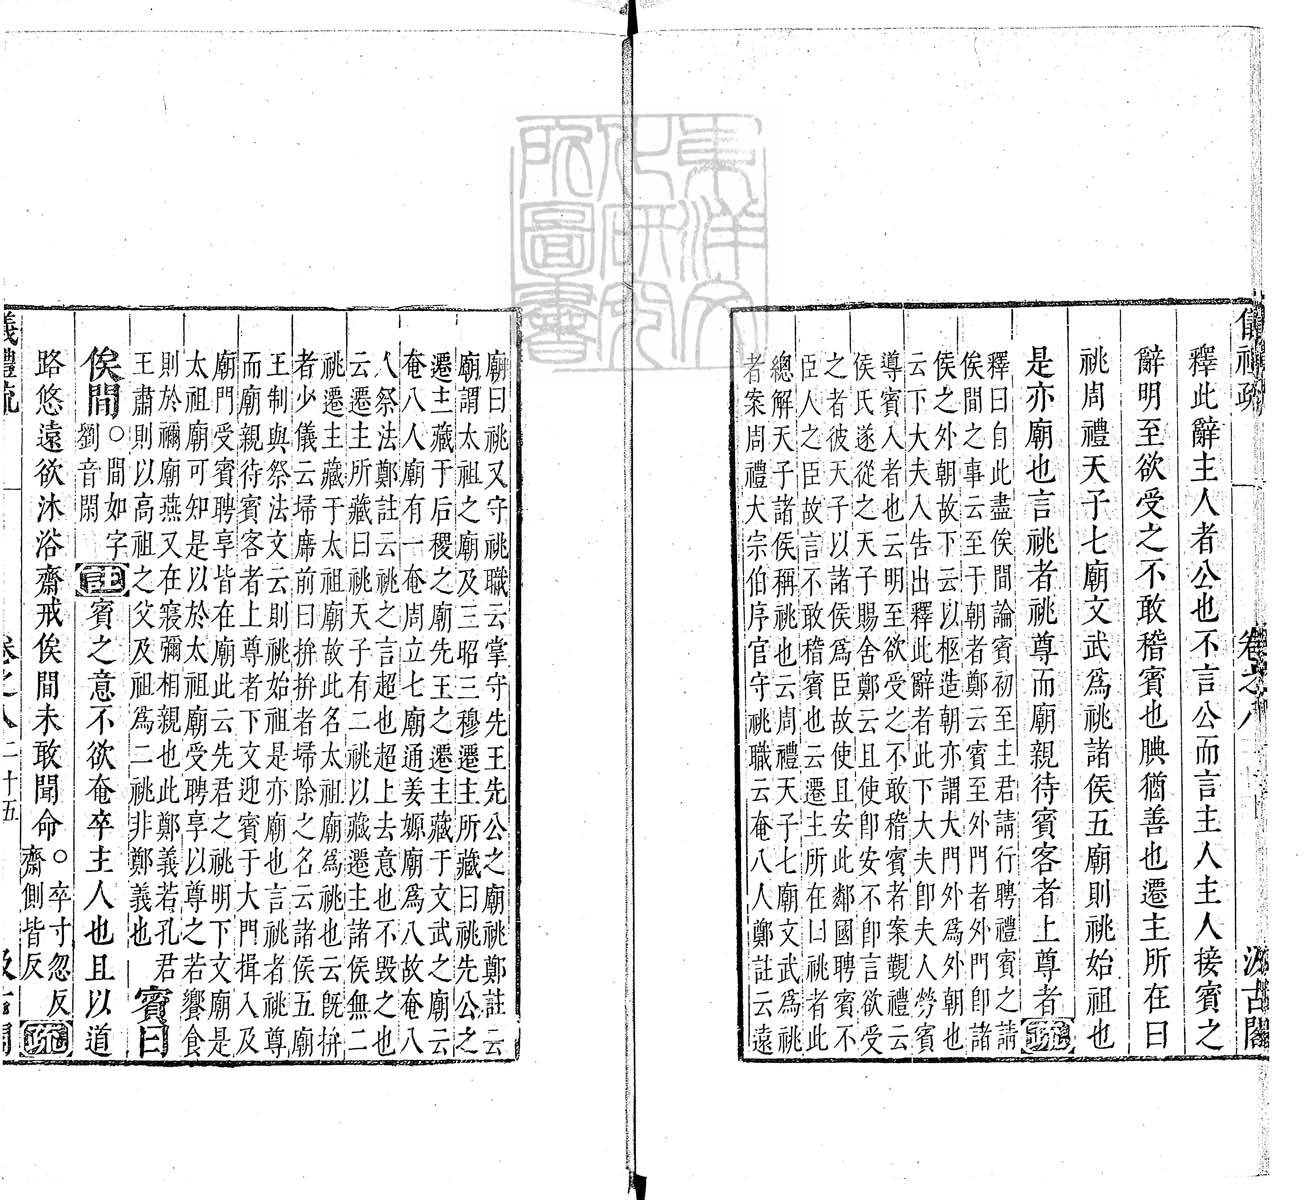 儀禮疏 卷之八 汲古閣
釋此辭主人者公也不言公而言主人主人接賓之
辭明至欲受之不敢稽賓也腆猶善也遷主所在曰
祧周禮天子七廟文武爲祧諸侯五廟則祧始祖也
是亦廟也言祧者祧尊而廟親待賓客者上尊者疏
釋曰自此盡俟間論賓初至主君請行聘禮賓之請
俟間之事云至于朝者鄭云賓至外門者外門卽諸
侯之外朝故下云以柩造朝亦謂大門外爲外朝也
云下大夫入告出釋此辭者此下大夫卽夫人勞賓
導賓入者也云明至欲受之不敢稽賓者案覲禮云
侯氏遂從之天子賜舍鄭云且使卽安不卽言欲受
之者彼天子以諸侯爲臣故使且安此鄰國聘賓不
臣人之臣故言不敢稽賓也云遷主所在曰祧者此
總解天子諸侯稱祧也云周禮天子七廟文武爲祧
者案周禮大宗伯序官守祧職云奄八人鄭註云遠
廟曰祧又守祧職云掌守先王先公之廟祧鄭註云
廟謂太祖之廟及三昭三穆遷主所藏曰祧先公之
遷主藏于后稷之廟先王之遷主藏于文武之廟云
奄八人廟有一奄周立七廟通姜嫄廟爲八故奄八
人祭法鄭註云祧之言超也超上去意也不毁之也
云遷主所藏曰祧天子有二祧以藏遷主諸侯無二
祧遷主藏于太祖廟故此名太祖廟爲祧也云旣拚
者少儀云埽席前曰拚拚者埽除之名云諸侯五廟
王制與祭法文云則祧始祖是亦廟也言祧者祧尊
而廟親待賓客者上尊者下文迎賓于大門揖入及
廟門受賓聘享皆在廟此云先君之祧明下文廟是
太祖廟可知是以於太祖廟受聘享以尊之若饗食
則於禰廟燕又在寢彌相親也此鄭義若孔君
王肅則以高祖之父及祖爲二祧非鄭義也
賓曰
俟間○間如字劉音閑註賓之意不欲奄卒主人也且以道
路悠遠欲沐浴齋戒俟間未敢聞命○卒寸忽反齋側皆反疏
儀禮疏 卷之八 二十五 汲古閣
東洋文化研究所圖書